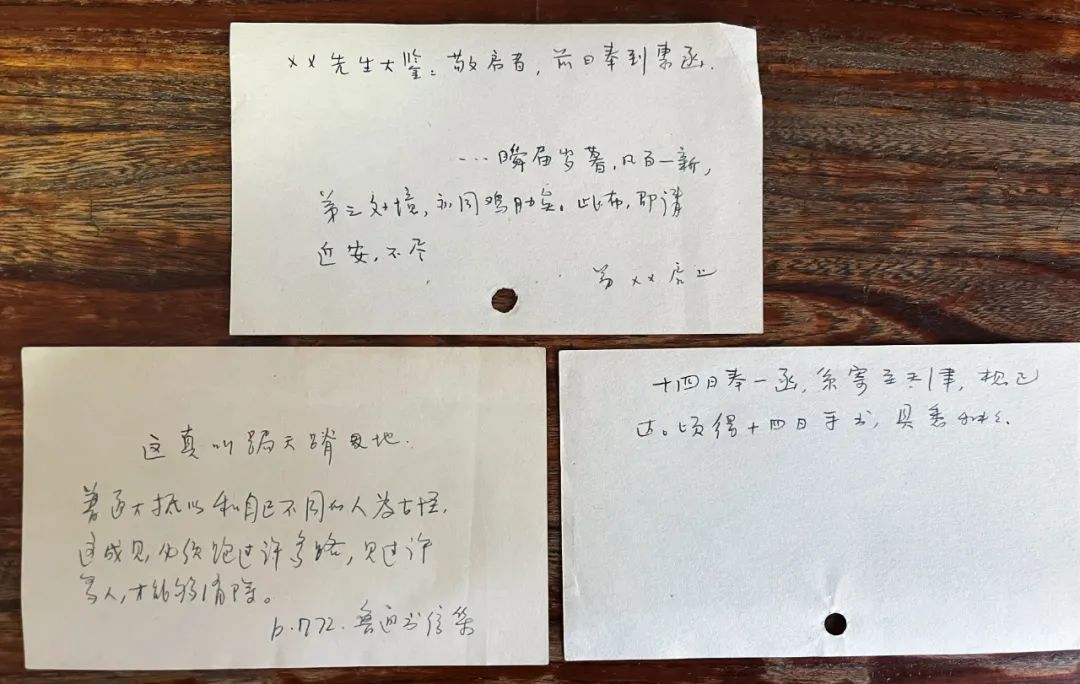 ××先生大鉴:敬启者,前日奉到惠函.
…瞬届岁暮,凡百一新,
弟之处境,亦同鸡肋矣。此布,即请
近安,不尽
弟××启上
这真叫跼天蹐地.
普通大抵以和自己不同的人为古怪,
这成见,必须跑过许多路,见过许
多人,才能够消除。
p.772.鲁迅书信集
十四日奉一函,系寄至天津,想已
达。顷得十四日手书,具悉种种.